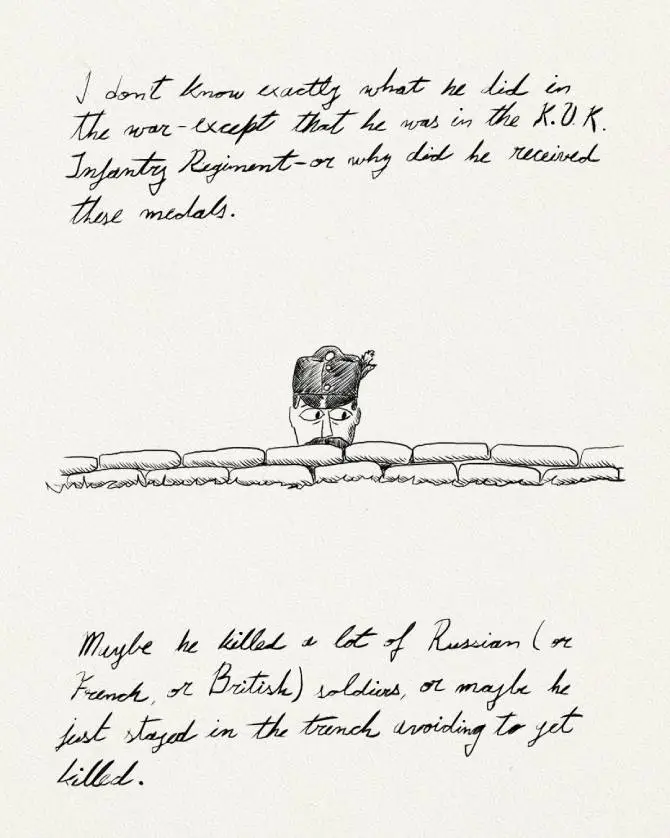 I don't know exactly what he did in
the war-except that he was in the K.U.K.
Infantry Regiment-or why did he received
these medals.
Maybe he killed a lot of Russian (or
French, or British) soldiers, or maybe he
just stayed in the trench avoiding to get
killed.